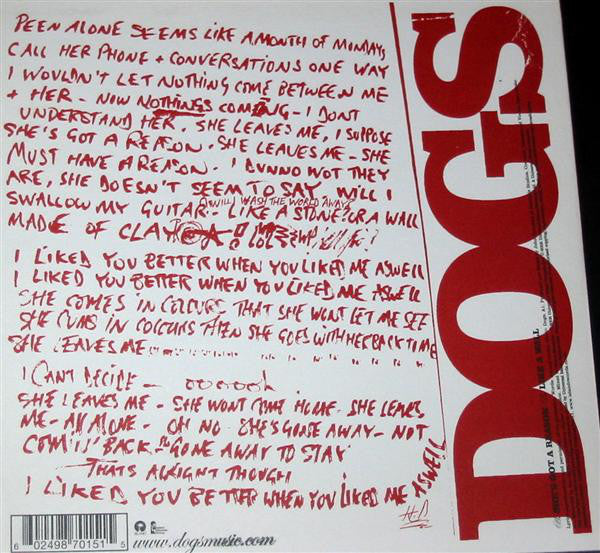 PEEN ALONE SEEMS LIKE A MONTH OF MONDAYS,
CALL HER PHONE + CONVERSATIONS ONE WAY
I WOULDN'T LET NOTHING COME BETWEEN ME
+ HER - NOW NOTHINGS COMING - I DONT
UNDERSTAND HER. SHE LEAVES ME, I SUPPOSE
SHE'S GOT A REASON. SHE LEAVES ME - SHE
MUST HAVE A REASON. I DUNNO WOT THEY
ARE, SHE DOESN'T SEEM TO SAY. WILL I
(I WILL WASH THE WORLD AWAY)
SWALLOW MY GUITAR - LIKE A STONE? OR A WALL
MADE OF CLAY
I LIKED YOU BETTER WHEN YOU LIKED ME ASWELL
I LIKED YOU BETTER WHEN YOU LIKED ME ASWELL
SHE COMES IN COLOURS THAT SHE WONT LET ME SEE
SHE CUMS IN COLOURS THEN SHE GOES WITH HER BACK TO ME
SHE LEAVES ME
I CANT DECIDE - OO OOOOH
SHE LEAVES ME - SHE WONT COME HOME - SHE LEAVES
ME - ALL ALONE - OH NO - SHE'S GONE AWAY - NOT
COMIN' BACK GONE AWAY TO STAY
THATS ALRIGHT THOUGH
I LIKED YOU BETTER WHEN YOU LIKED ME ASWELL
DOGS
SHE'S GOT A REASON
LIKE A WALL
6 02498 70151 5
www.dogsmusic.com